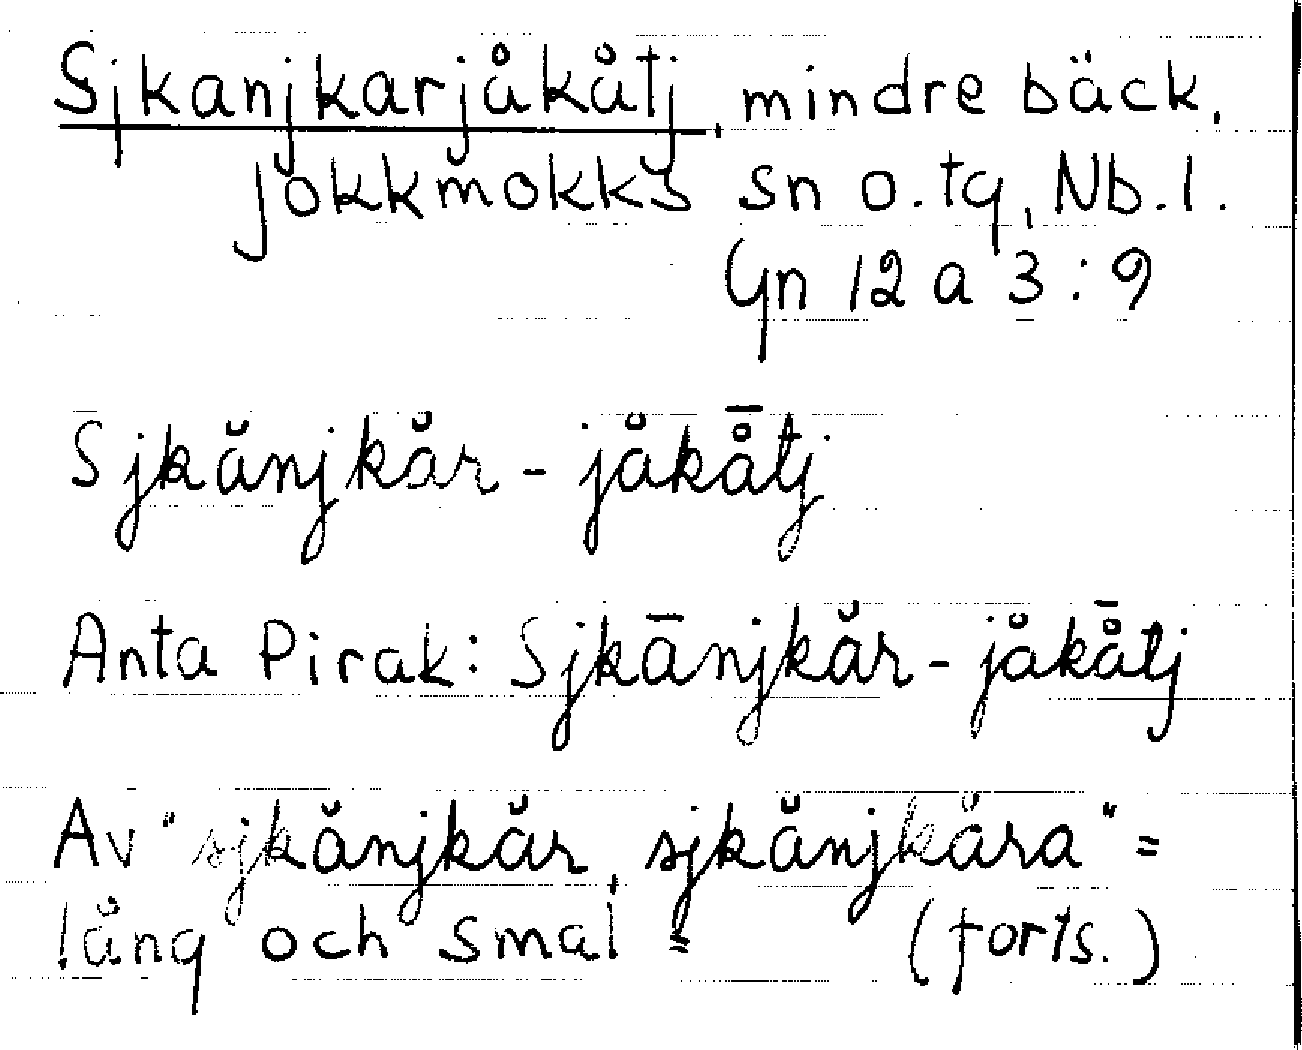 Sjkanjkarjåkåtj, mindre bäck,
Jokkmokks sn o. tg, Nb. l.
Gn 12 a 3 : 9
Sjkănjkăr - jåkå̄tj
Anta Pirak: Sjkānjkăr - jåkå̄tj
Av "sjkănjkăr, sjkănjkăra" =
lång och smal = (forts.)